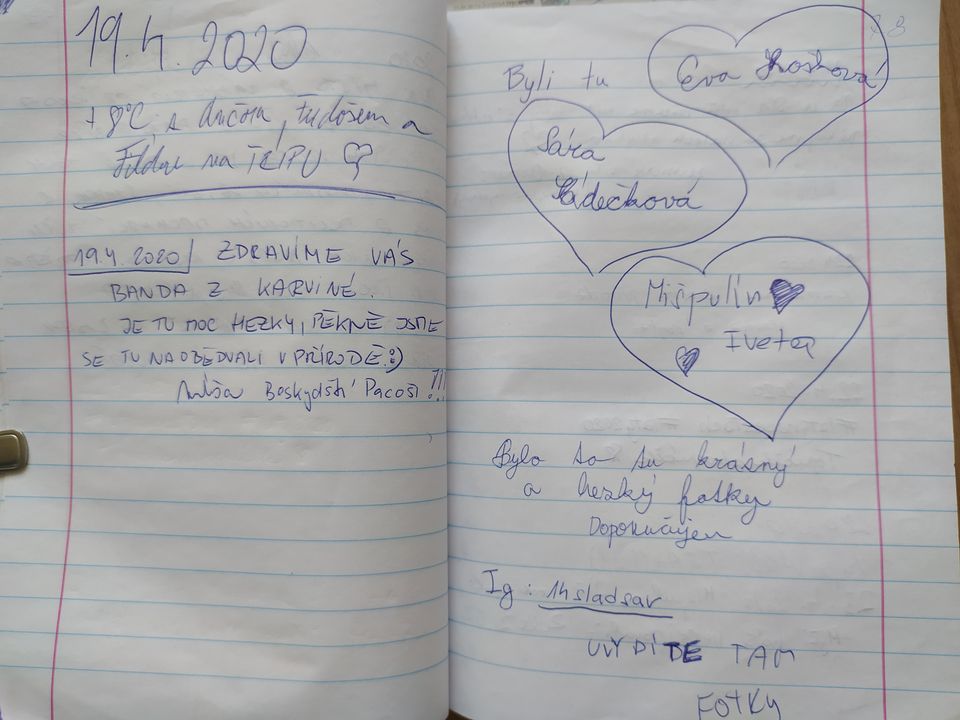 19.4.2020
+ 8°C, s
na TRIPU
19.4.2020 ZDRAVÍME VÁS
BANDA Z KARVINÉ.
JE TU MOC HEZKY, PĚKNĚ JSME
SE TU NAOBĚDVALI V PŘÍRODĚ :)
Beskydští Pacoši !!!
Byli tu
Eva
Sára
Sádečková
Mišpulín
Iveta
Bylo to tu krásný
a hezký fotky
Doporučujem
Ig : 1hsladsar
UVYDÍTE TAM
FOTKY